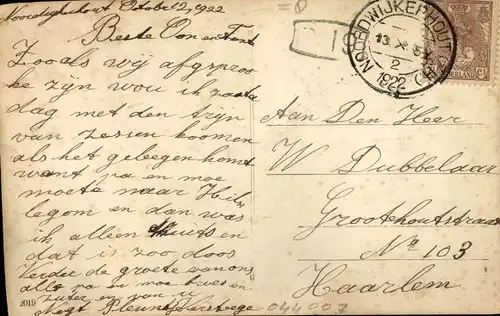 Noordwijkerhout October 12, 1922
Beste Oom en Tante
Zooals wij afgespro
ke zijn wou ik zoo
dag met den trijn
van zessen koomen
als het geleegen komt
want pa en moe
moete naar Hil
legom en dan was
ik alleen thuis en
dat is zoo doos
Verder de groete van ons
alle pa en moe broes en
zuster en van u
Nigt
2019
NOORDWIJKERHOUT (Z.H.)
13 X
2
1922
Aan Den Heer
W Dubbelaar
Groothoutstraat
No 103
Haarlem
044007